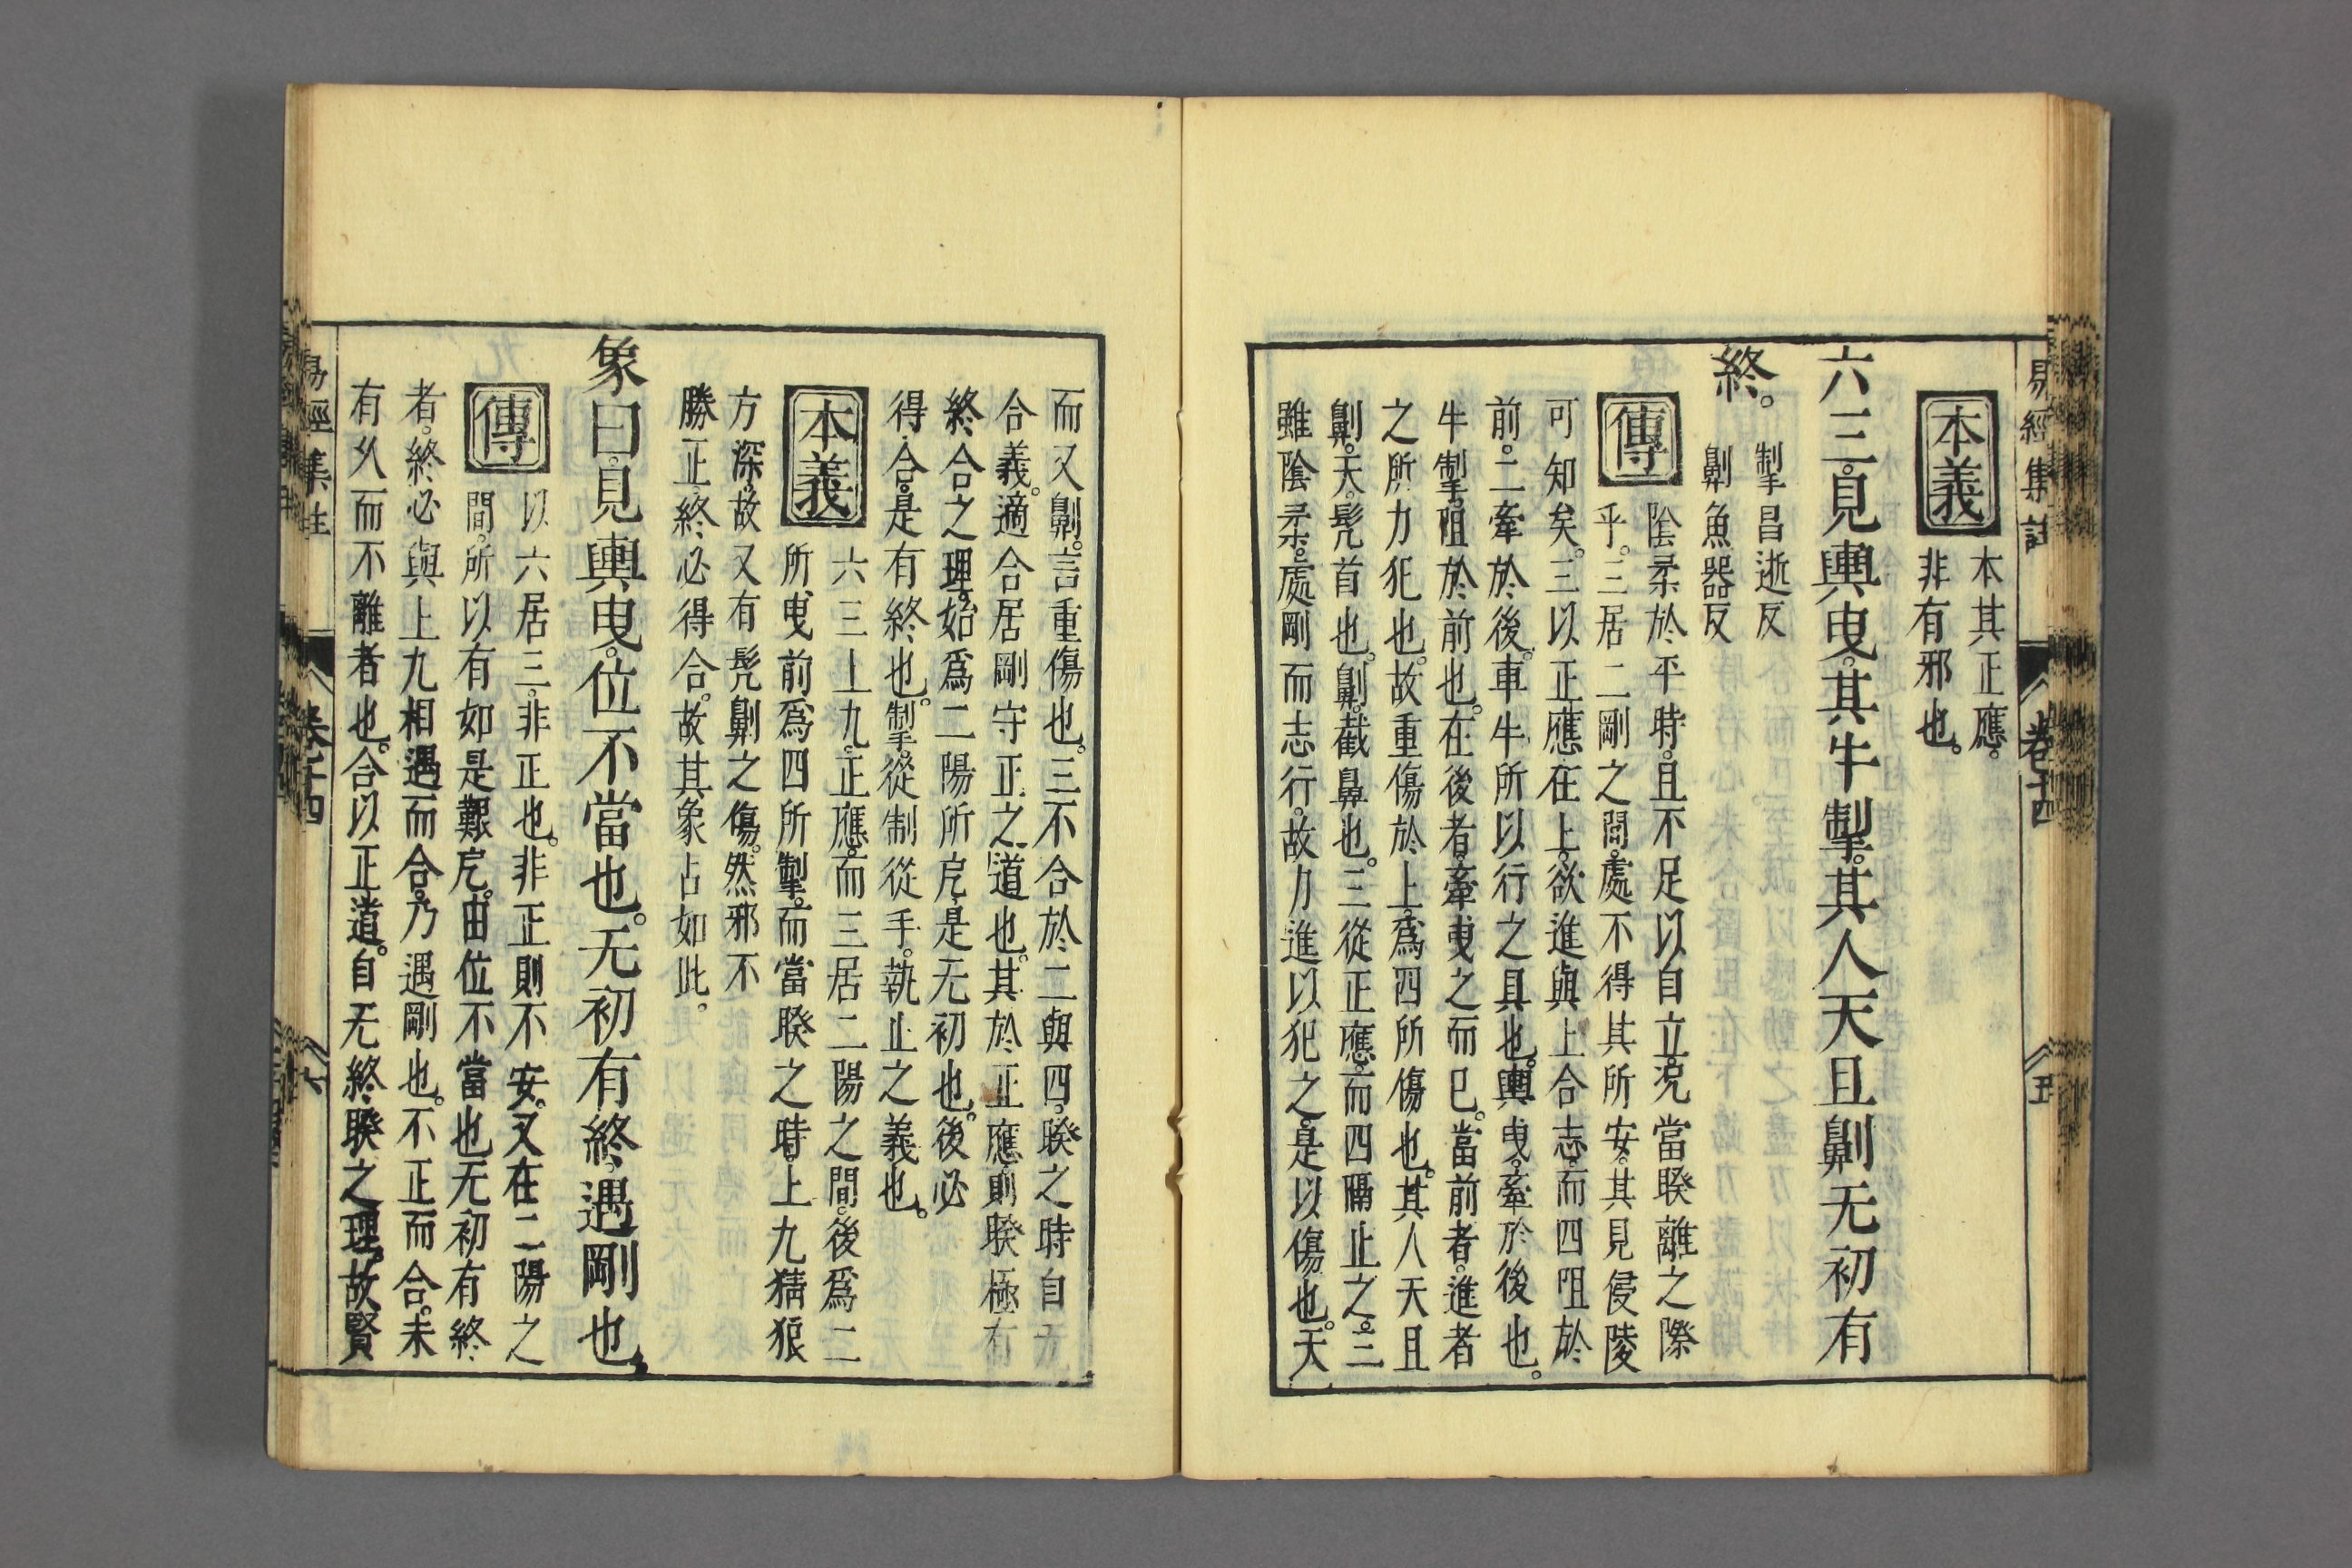 易經集註 卷十四 五
本義
本其正應。
非有邪也。
六三。見輿曳。其牛掣。其人天且劓。无初有
終。
掣昌逝反
劓魚器反
傳
陰柔於平時。且不足以自立。況當睽離之際
乎。三居二剛之間。處不得其所安。其見侵陵
可知矣。三以正應在上。欲進與上合志。而四阻於
前。二牽於後。車牛所以行之具也。輿曳。牽於後也。
牛掣。阻於前也。在後者。牽曳之而已。當前者。進者
之所力犯也。故重傷於上。爲四所傷也。其人天且
劓。天。髡首也。劓。截鼻也。三從正應。而四隔止之。三
雖陰柔。處剛而志行。故力進以犯之。是以傷也。天
而又劓。言重傷也。三不合於二與四。睽之時自无
合義。適合居剛守正之道也。其於正應則睽極有
終合之理。始爲二陽所戹。是无初也。後必
得合。是有終也。掣。從制從手。執止之義也。
本義
六三上九。正應。而三居二陽之間。後爲二
所曳。前爲四所掣。而當睽之時。上九猜狠
方深。故又有髡劓之傷。然邪不
勝正。終必得合。故其象占如此。
象曰。見輿曳。位不當也。无初有終。遇剛也。
傳
以六居三。非正也。非正則不安。又在二陽之
間。所以有如是艱戹。由位不當也。无初有終
者。終必與上九相遇而合。乃遇剛也。不正而合。未
有久而不離者也。合以正道。自无終睽之理。故賢
易經集註 卷十四 六